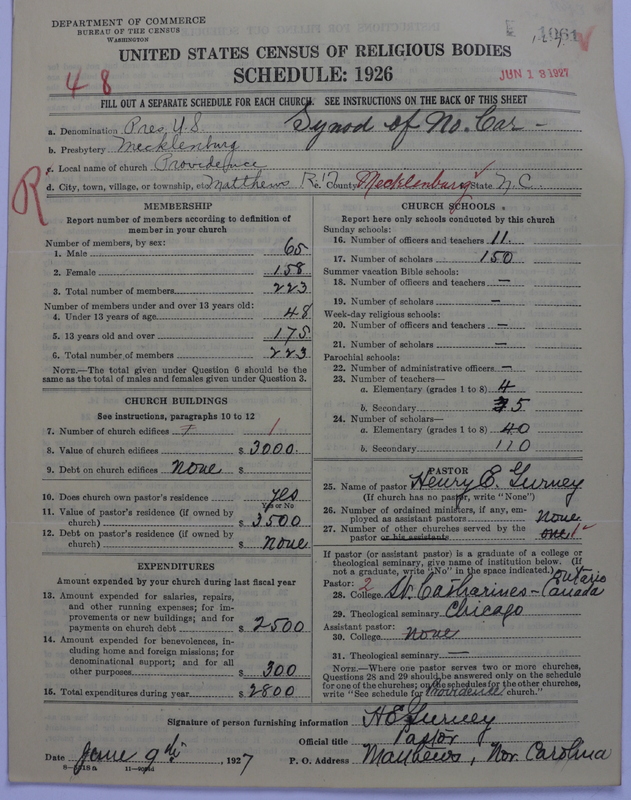 DEPARTMENT OF COMMERCE
BUREAU OF THE CENSUS
WASHINGTON
UNITED STATES CENSUS OF RELIGIOUS BODIES
SCHEDULE: 1926
48
JUN 18 1927
FILL OUT A SEPARATE SCHEDULE FOR EACH CHURCH. SEE INSTRUCTIONS ON THE BACK OF THIS SHEET
a. Denomination Pres. U.S. Synod of No. Car -
b. Presbytery Mecklenburg
c. Local name of church Providence
R
d. City, town, village, or township, etc Matthews County Mecklenburg State N.C.
MEMBERSHIP
Report number of members according to definition of
member in your church
Number of members, by sex:
1. Male 65
2. Female 158
3. Total number of members 223
Number of members under and over 13 years old:
4. Under 13 years of age 48
5. 13 years old and over 175
6. Total number of members 223
NOTE.—The total given under Question 6 should be
same as the total of males and females given under Question 3.
CHURCH BUILDINGS
See instructions, paragraphs 10 to 12
7. Number of church edifices 1
8. Value of church edifices $ 3000.
9. Debt on church edifices none $
10. Does church own pastor's residence yes
Yes or No
11. Value of pastor's residence (if owned by
church) $ 3500
12. Debt on pastor's residence (if owned by
church) $ none
EXPENDITURES
Amount expended by your church during last fiscal year
13. Amount expended for salaries, repairs,
and other running expenses; for im-
provements or new buildings; and for
payments on church debt $ 2500
14. Amount expended for benevolences, in-
cluding home and foreign missions; for
denominational support; and for all
other purposes $ 300
15. Total expenditures during year $ 2800
CHURCH SCHOOLS
Report here only schools conducted by this church
Sunday schools:
16. Number of officers and teachers 11.
17. Number of scholars 150
Summer vacation Bible schools:
18. Number of officers and teachers —
19. Number of scholars —
Week-day religious schools:
20. Number of officers and teachers —
21. Number of scholars —
Parochial schools:
22. Number of administrative officers —
23. Number of teachers—
a. Elementary (grades 1 to 8) 4
b. Secondary 5
24. Number of scholars—
a. Elementary (grades 1 to 8) 40
b. Secondary 110
PASTOR
25. Name of pastor Henry E. Gurney
(If church has no pastor, write "None")
26. Number of ordained ministers, if any, em-
ployed as assistant pastors None
27. Number of other churches served by the
pastor or his assistants one 1
If pastor (or assistant pastor) is a graduate of a college or
theological seminary, give name of institution below. (If
not a graduate, write "No" in the space indicated.)
Pastor: 2 Ontario
28. College St. Catharines - Canada
29. Theological seminary Chicago
Assistant pastor:
30. College none
31. Theological seminary —
NOTE.—Where one pastor serves two or more churches,
Questions 28 and 29 should be answered only on the schedule
for one of the churches; on the schedules for the other churches,
write "See schedule for Providence church."
Signature of person furnishing information H E Gurney
Official title Pastor
Date June 9th, 1927 P. O. Address Matthews, Nor. Carolina